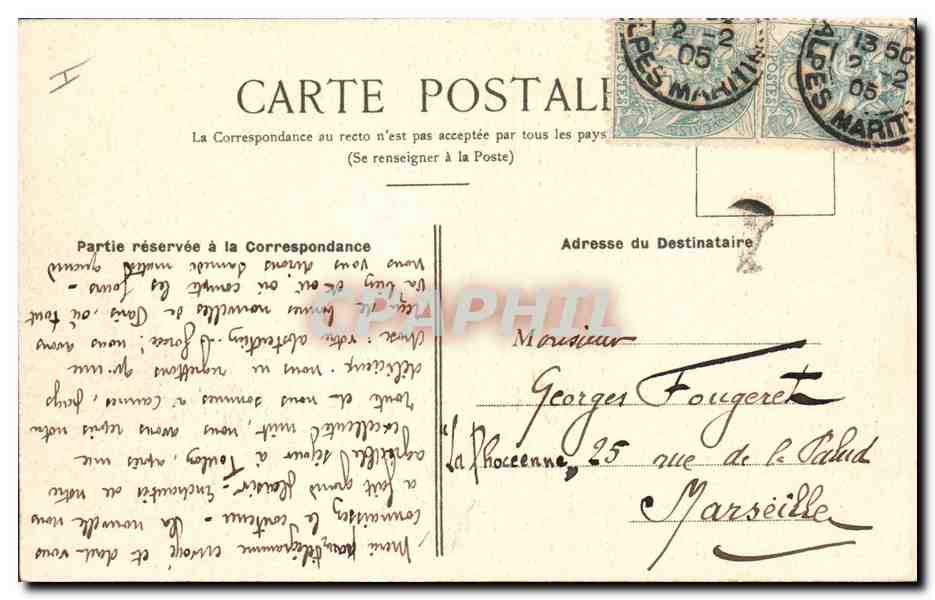 CARTE POSTALE
La Correspondance au recto n'est pas acceptée par tous les pays
(Se renseigner à la Poste)
2 -2
05
ALPES MARITIM
13 50
2 -2
05
ALPES MARITI
POSTES
Partie réservée à la Correspondance
Adresse du Destinataire
Merci pour télégramme envoyé et dont vous
connaissez le contenu - La nouvelle nous
a fait grand plaisir - Enchantés de notre
agréable séjour à Toulon, après une
excellente nuit, nous avons repris notre
route et nous sommes à Cannes, pays
délicieux. nous ne regrettons qu'une
chose : votre abstention. forcée! nous avons
reçu de bonnes nouvelles de Paris, où tout
va bien et où on compte les jours -
nous vous dirons samedi matin quand
Monsieur
Georges Fougeret
"La Phocéenne, 25 rue de la Palud
Marseille
CPAPHIL